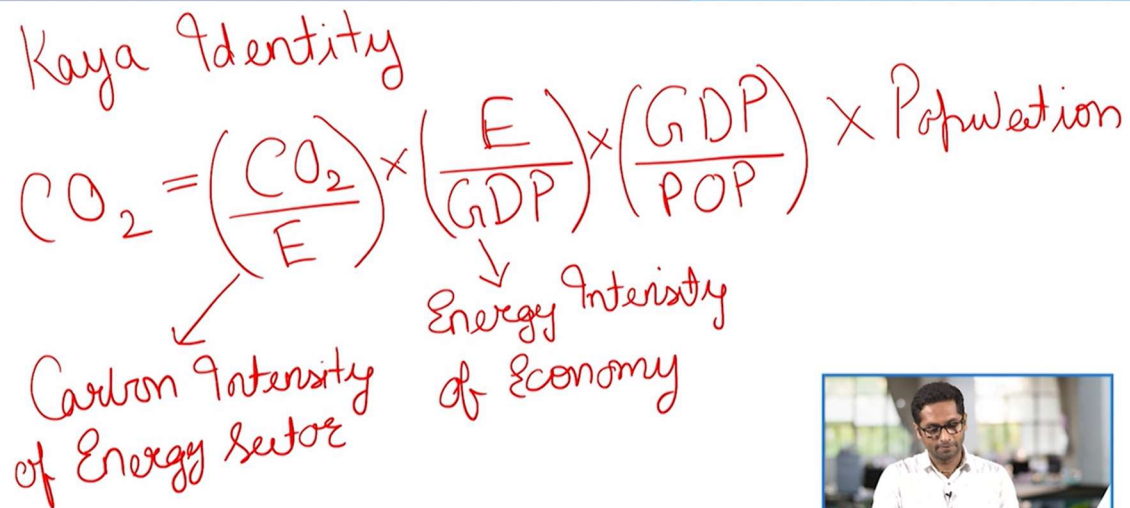 Kaya Identity
CO₂ = (CO₂/E) × (E/GDP) × (GDP/POP) × Population
Carbon Intensity
of Energy Sector
Energy Intensity
of Economy